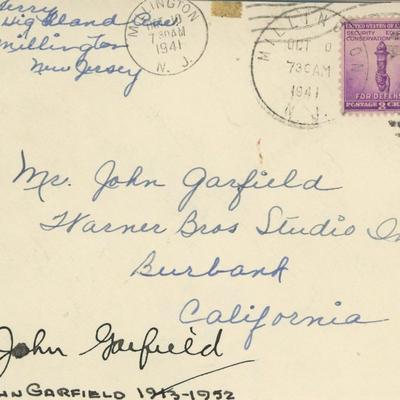 Highland Ave
Millington
New Jersey
MILLINGTON
730AM
1941
N. J.
MILLINGTON
OCT
730AM
1941
N. J.
SECURITY
CONSERVATION
FOR DEFENSE
POSTAGE 3
Mr. John Garfield
Warner Bros Studio In
Burbank
California
John Garfield
HN GARFIELD 1913-1952